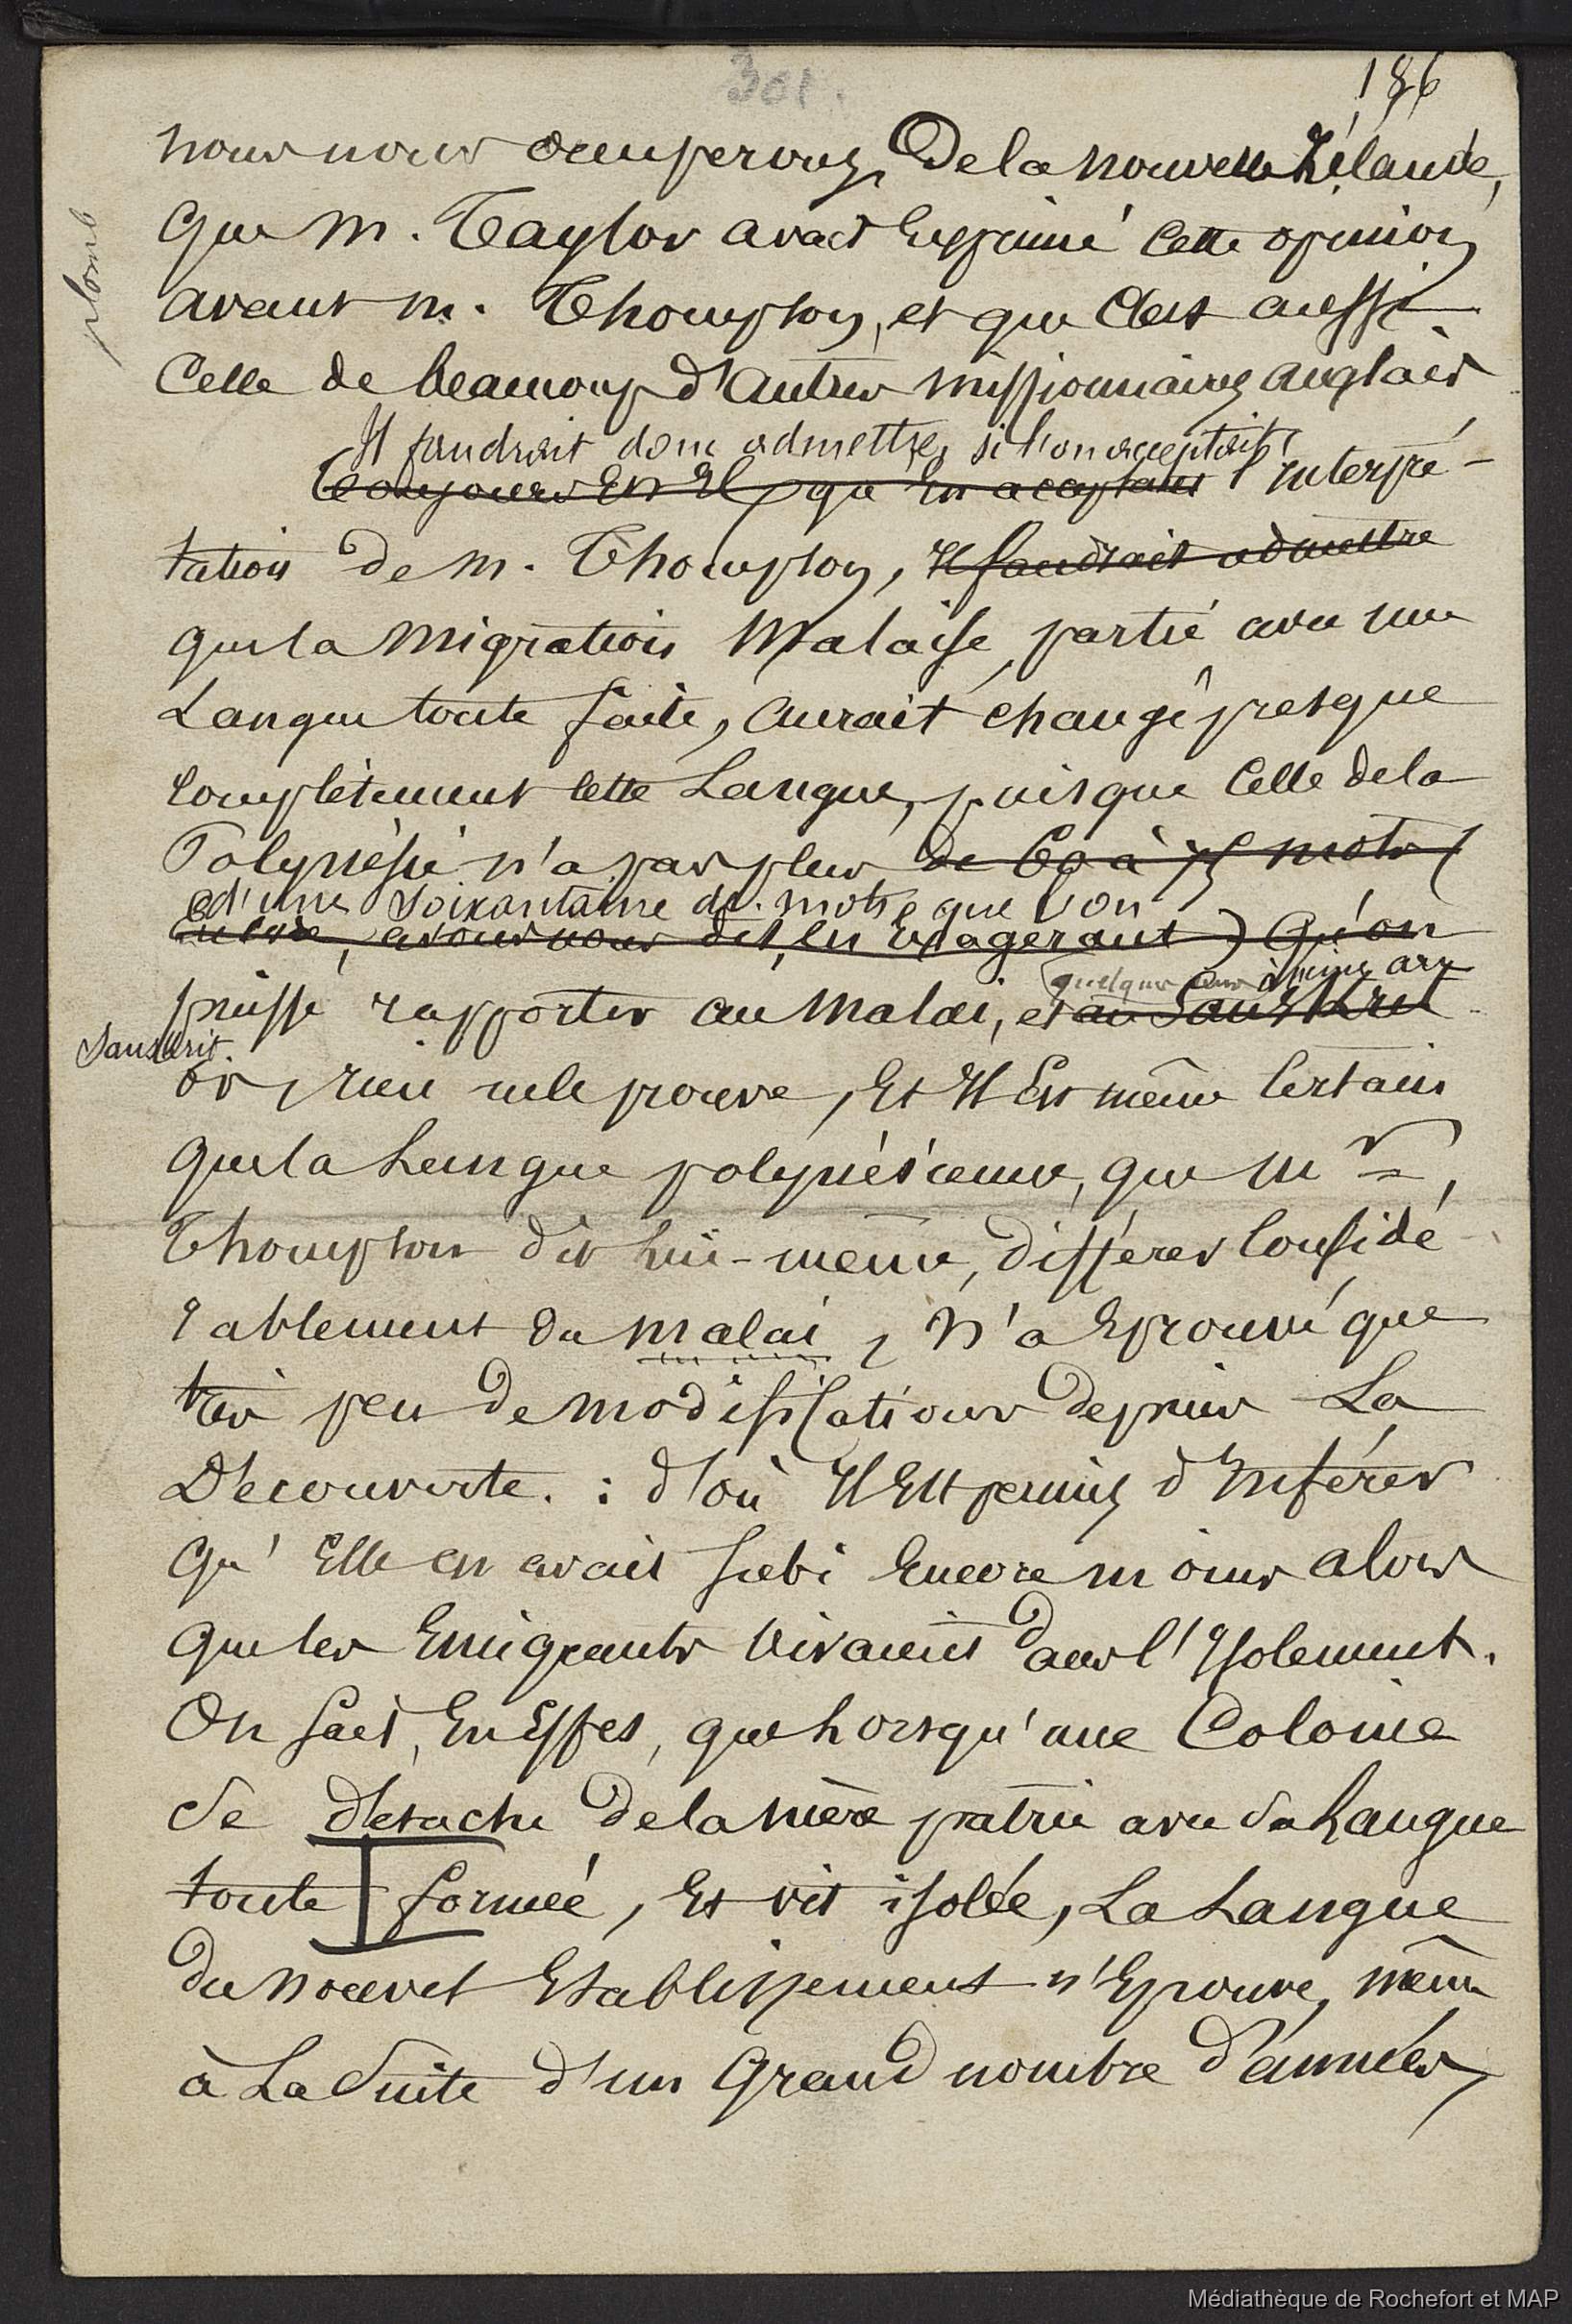 301.
186
plomb
nous nous occuperons De la nouvelle Zélande,
que M. Taylor avait Exprimé Cette opinion
avant m. Thompson, et que C'est aussi
Celle de beaucoup d'Autres missionnaires anglais
Il faudrait donc admettre, si l'on acceptait
Toujours En Est que En acceptant l'interpré-
tation de m. Thompson, Il faudrait admettre
que la Migration Malaise, partie avec une
Langue toute faite, aurait changé presque
Complètement Cette Langue, puisque Celle de la
Polynésie n'a pas plus de 60 à 75 mots (
d'une soixantaine de mots que l'on
avons nous dit, en Exagérant) qu'on
quelques uns à peine au
puisse rapporter au Malai, et au Sanskrit
Sanscrit.
or, rien ne le prouve, Et Il Est même Certain
que la Langue polynésienne, que Mr
Thompson dit lui-même, différer Considé
rablement du malai, N'a Eprouvé que
très peu De modifications depuis La
Découverte. : d'où Il Est permis d'Inférer
qu'Elle en avait subi Encore moins alors
que les Emigrants vivaient Dans l'Isolement.
On sait, En Effet, que Lorsqu'une Colonie
se détache De la mère patrie avec sa Langue
toute formée, Et vit isolée, La Langue
Du Nouvel Etablissement n'Eprouve, même
à La Suite d'un Grand nombre d'années,
Médiathèque de Rochefort et MAP